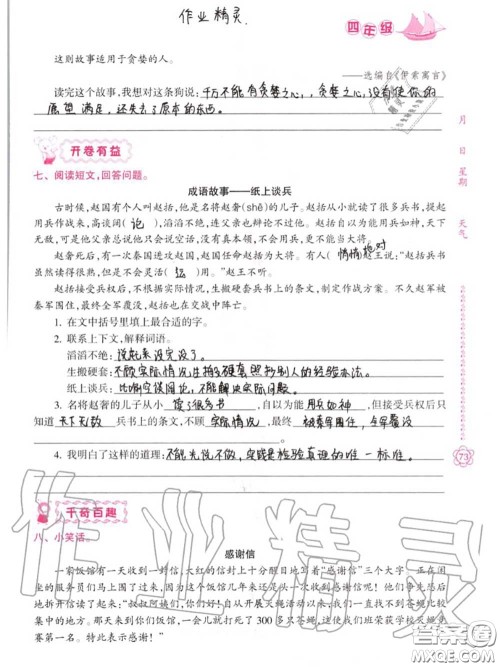 作业精灵
四年级
这则故事适用于贪婪的人。
——选编自《伊索寓言》
读完这个故事，我想对这条狗说：千万不能有贪婪之心，贪婪之心，没有使你的
愿望满足，还失去了原本的东西。
月 日 星期 天气
开卷有益
七、阅读短文，回答问题。
成语故事——纸上谈兵
古时候，赵国有个人叫赵括，他是名将赵奢(shē)的儿子。赵括从小就读了很多兵书，提起
用兵作战来，高谈阔( 论 )，滔滔不绝，连父亲也辩论不过他。赵括自以为能用兵如神，天下
无敌，可是他父亲总说他只会说空话，没有真本领，不会用兵，更不能当大将。
赵奢死后，有一次秦国进攻赵国，赵国任命赵括为大将。有人( 悄悄 )地对赵王说：“赵括兵书
虽然读得很熟，但是不会灵活( 运 )用。”赵王不听。
赵括接受兵权后，不根据实际情况，生搬硬套兵书上的条文，制定作战方案。不久赵军被
秦军围住，最终全军覆没，赵括也在交战中阵亡。
1. 在文中括号里填上最合适的字。
2. 联系上下文，解释词语。
滔滔不绝：说起来没完没了。
生搬硬套：不顾实际情况，生搬硬套照抄别人的经验办法。
纸上谈兵：比喻空谈阔论，不能解决实际问题。
3. 名将赵奢的儿子从小 读了很多书 ，自以为能 用兵如神 ，但接受兵权后只
知道 天下无敌 兵书上的条文，不顾 实际情况 ，最终 被秦军围住，全军覆没
4. 我明白了这样的道理：不能光说不做，实践是检验真理的唯一标准。
73
千奇百趣
八、小笑话。
感谢信
一前饭馆有一天收到一封信，大红的信封上十分醒目地写着“感谢信”三个大字，正在闲
坐的服务员们马上围了过来，因为这个饭馆几年来还是头一次收到感谢信呢！他们争先恐后
地拆开信封读了起来：“叔叔阿姨们，你们好！自从开展灭蝇活动以来，我们一直找不到苍蝇比较
集中的地方。那天来到你们饭馆，仅仅一个下午就打了300多只苍蝇，这使我们班荣获学校灭蝇竞
赛第一名。特此表示感谢！”
作业精灵
答案圈
MXQE.COM